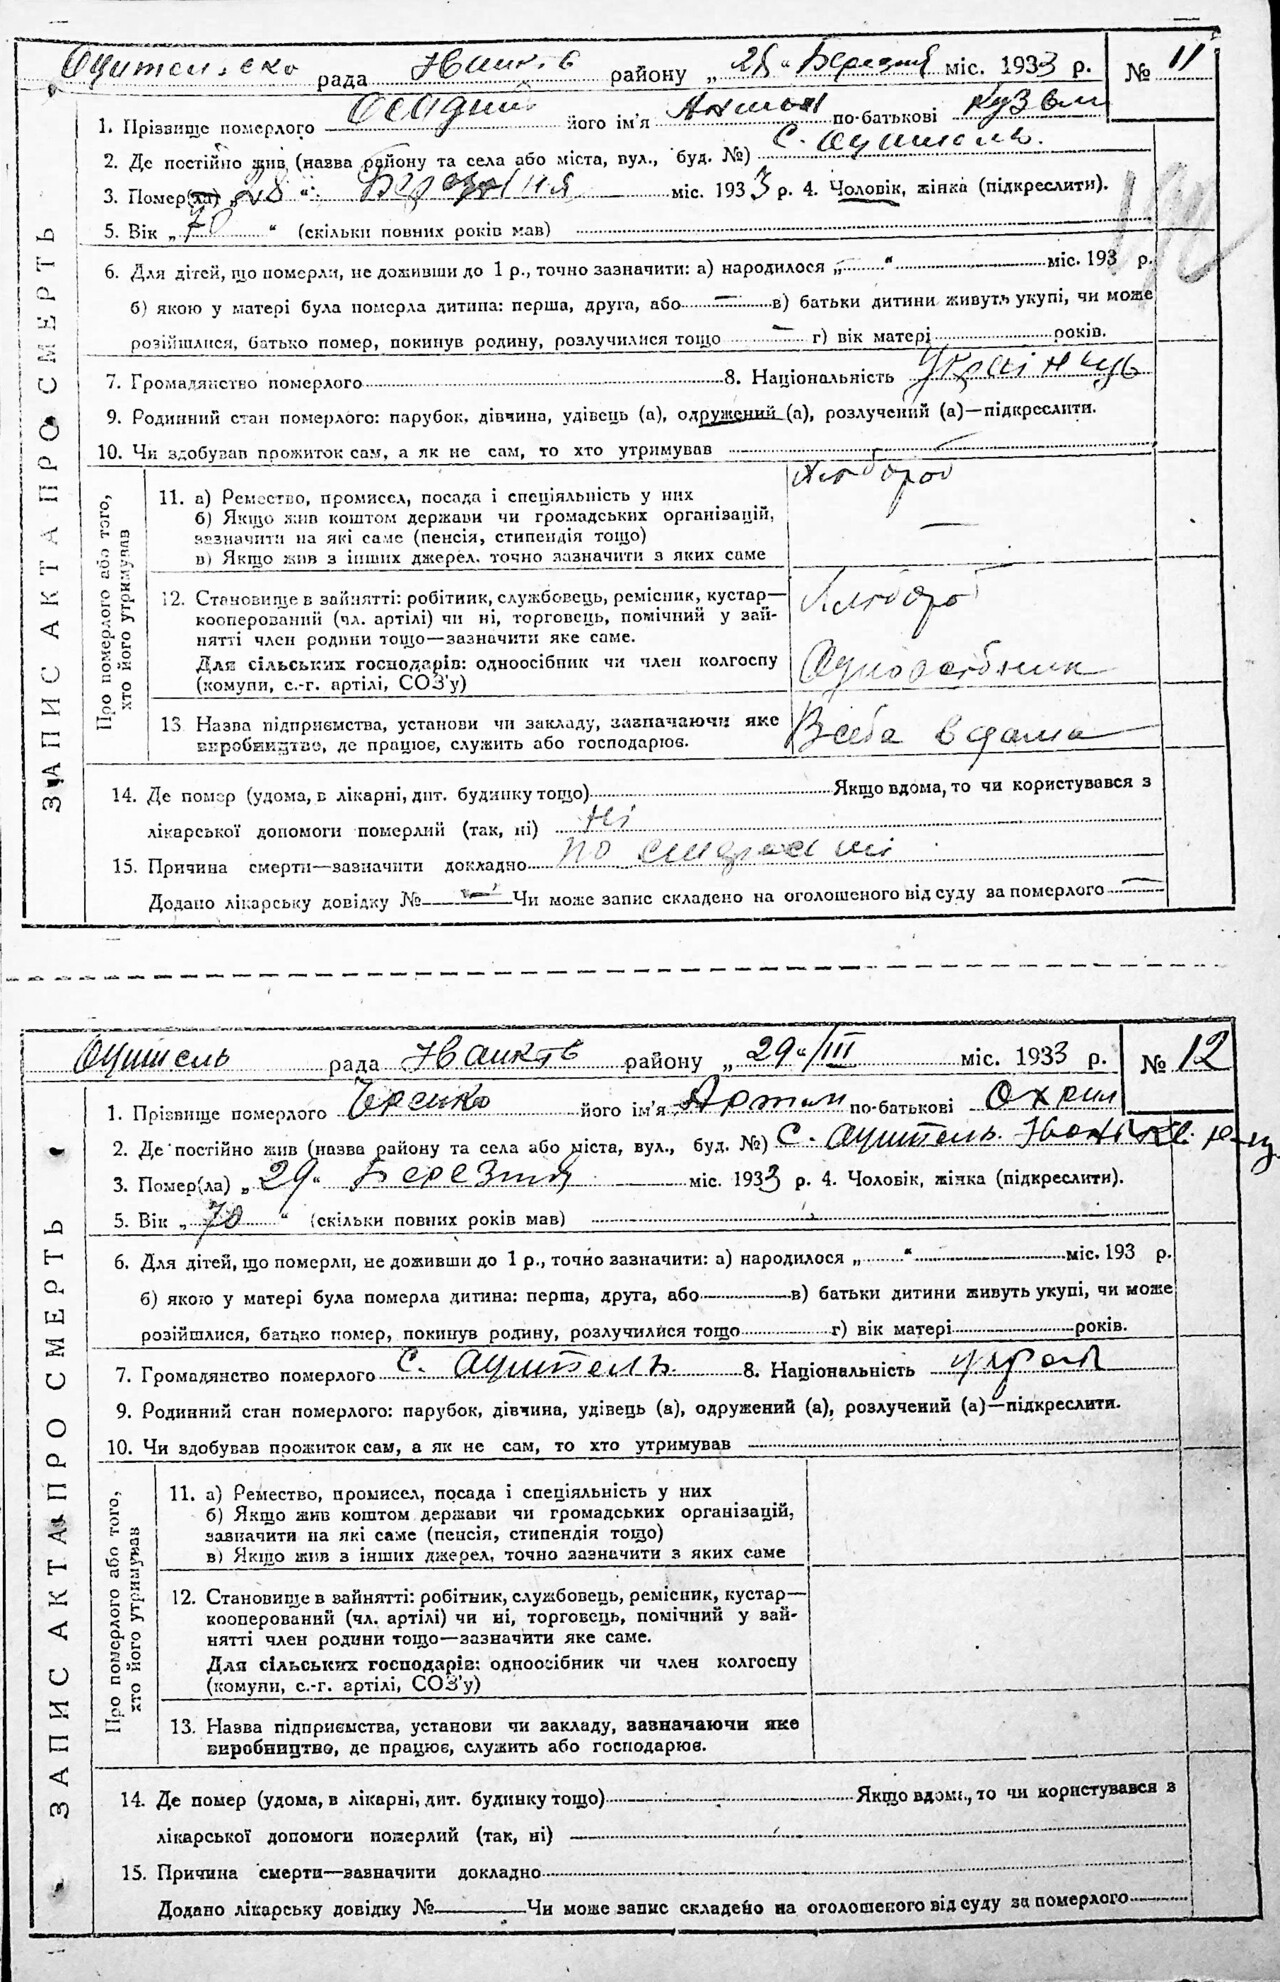 рада району „28“ Березня міс. 1933 р. № 11
1. Прізвище померлого Осадчий його ім'я Антон по-батькові Кузьм
2. Де постійно жив (назва району та села або міста, вул., буд. №) С. Оцитель.
3. Помер(ла) „28“ Березня міс. 1933 р. 4. Чоловік, жінка (підкреслити).
5. Вік „70“ (скільки повних років мав)
6. Для дітей, що померли, не доживши до 1 р., точно зазначити: а) народилося „ “ міс. 193 р.
б) якою у матері була померла дитина: перша, друга, або — в) батьки дитини живуть укупі, чи може
розійшлися, батько помер, покинув родину, розлучилися тощо — г) вік матері років.
7. Громадянство померлого 8. Національність Українець
9. Родинний стан померлого: парубок, дівчина, удівець (а), одружений (а), розлучений (а)—підкреслити.
10. Чи здобував прожиток сам, а як не сам, то хто утримував —
ЗАПИС АКТА ПРО СМЕРТЬ
Про померлого або того,
хто його утримував
11. а) Ремество, промисел, посада і спеціяльність у них Хлібороб
б) Якщо жив коштом держави чи громадських організацій,
зазначити на які саме (пенсія, стипендія тощо) —
в) Якщо жив з інших джерел, точно зазначити з яких саме
12. Становище в зайнятті: робітник, службовець, ремісник, кустар— Хлібороб
кооперований (чл. артілі) чи ні, торговець, помічний у зай-
нятті член родини тощо—зазначити яке саме.
Для сільських господарів: одноосібник чи член колгоспу Одноосібник
(комуни, с.-г. артілі, СОЗ'у)
13. Назва підприємства, установи чи закладу, зазначаючи яке В себе в дома
виробництво, де працює, служить або господарює.
14. Де помер (удома, в лікарні, дит. будинку тощо) Якщо вдома, то чи користувався з
лікарської допомоги померлий (так, ні) Ні
15. Причина смерти—зазначити докладно по старости
Додано лікарську довідку № — Чи може запис складено на оголошеного від суду за померлого —
Оцитель рада району „29“/III міс. 1933 р. № 12
1. Прізвище померлого його ім'я Артем по-батькові Охрім
2. Де постійно жив (назва району та села або міста, вул., буд. №) С. Оцитель.
3. Помер(ла) „29“ Березня міс. 1933 р. 4. Чоловік, жінка (підкреслити).
5. Вік „70“ (скільки повних років мав)
6. Для дітей, що померли, не доживши до 1 р., точно зазначити: а) народилося „ “ міс. 193 р.
б) якою у матері була померла дитина: перша, друга, або в) батьки дитини живуть укупі, чи може
розійшлися, батько помер, покинув родину, розлучилися тощо г) вік матері років.
7. Громадянство померлого С. Оцитель. 8. Національність Украї
9. Родинний стан померлого: парубок, дівчина, удівець (а), одружений (а), розлучений (а)—підкреслити.
10. Чи здобував прожиток сам, а як не сам, то хто утримував
ЗАПИС АКТА ПРО СМЕРТЬ
Про померлого або того,
хто його утримував
11. а) Ремество, промисел, посада і спеціяльність у них
б) Якщо жив коштом держави чи громадських організацій,
зазначити на які саме (пенсія, стипендія тощо)
в) Якщо жив з інших джерел, точно зазначити з яких саме
12. Становище в зайнятті: робітник, службовець, ремісник, кустар—
кооперований (чл. артілі) чи ні, торговець, помічний у зай-
нятті член родини тощо—зазначити яке саме.
Для сільських господарів: одноосібник чи член колгоспу
(комуни, с.-г. артілі, СОЗ'у)
13. Назва підприємства, установи чи закладу, зазначаючи яке
виробництво, де працює, служить або господарює.
14. Де помер (удома, в лікарні, дит. будинку тощо) Якщо вдома, то чи користувався з
лікарської допомоги померлий (так, ні)
15. Причина смерти—зазначити докладно
Додано лікарську довідку № Чи може запис складено на оголошеного від суду за померлого